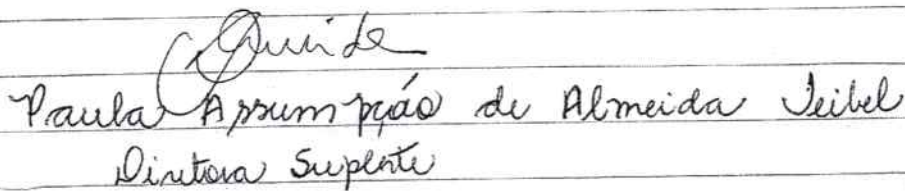 Paula Assumpção de Almeida Seibel
Diretora Suplente